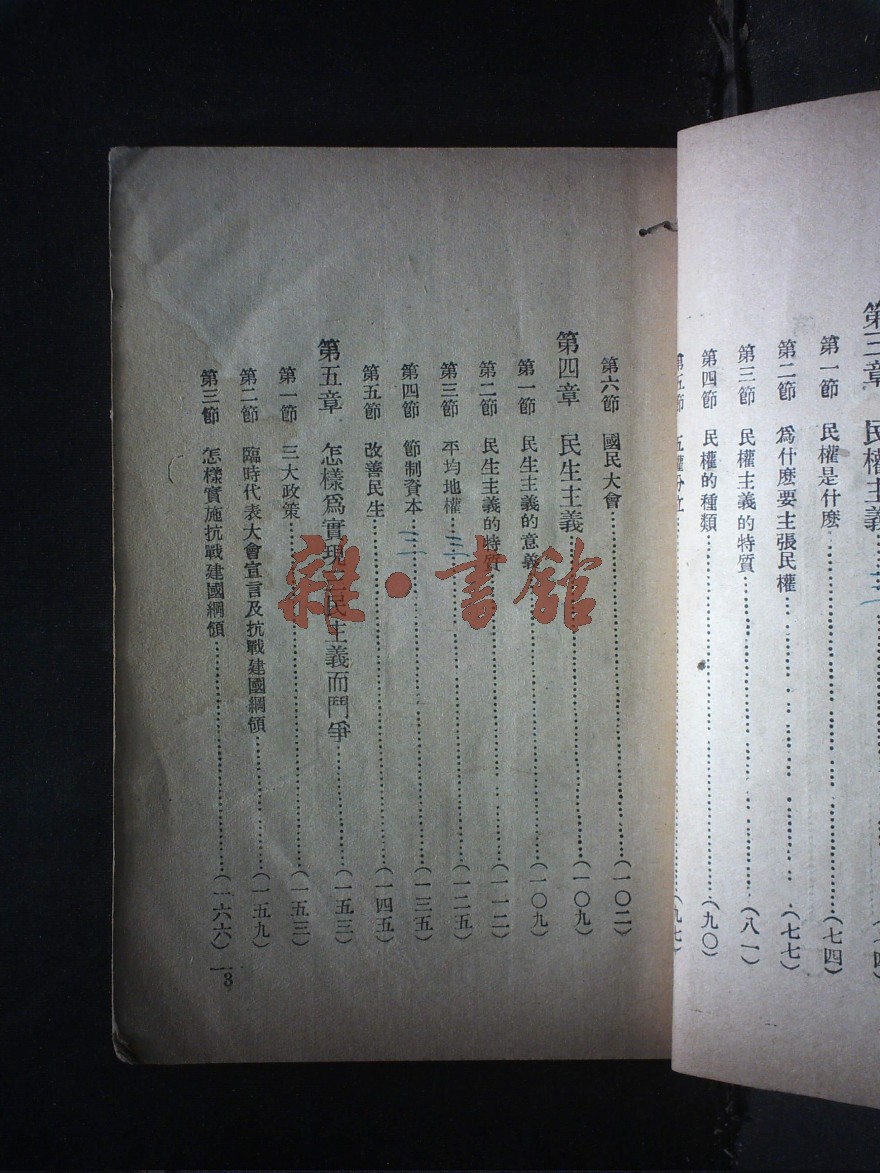 第三章 民權主義
第一節 民權是什麽……(七四)
第二節 爲什麽要主張民權……(七七)
第三節 民權主義的特質……(八一)
第四節 民權的種類……(九〇)
第五節 五權分立……(九七)
第六節 國民大會……(一〇二)
第四章 民生主義……(一〇九)
第一節 民生主義的意義……(一〇九)
第二節 民生主義的特質……(一一二)
第三節 平均地權……(一二五)
第四節 節制資本……(一三五)
第五節 改善民生……(一四五)
第五章 怎樣爲實現三民主義而鬥爭……(一五三)
第一節 三大政策……(一五三)
第二節 臨時代表大會宣言及抗戰建國綱領……(一五九)
第三節 怎樣實施抗戰建國綱領……(一六六)
雜·書館